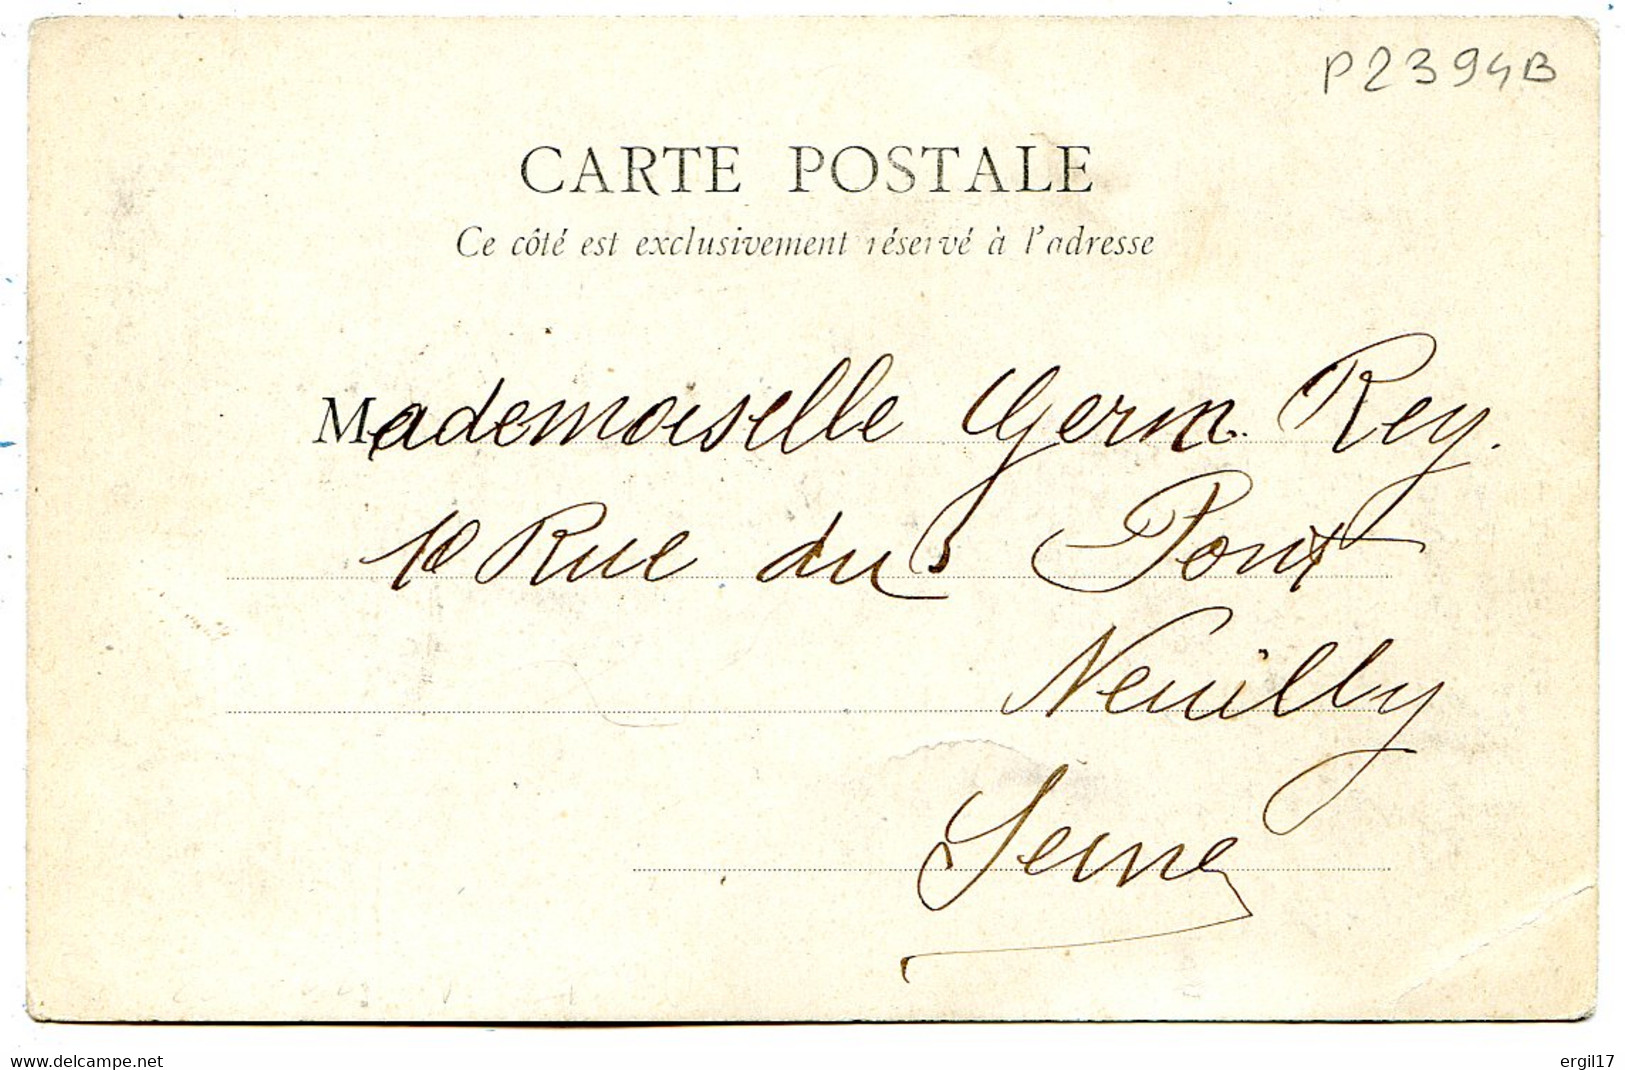 P2394B
CARTE POSTALE
Ce côté est exclusivement réservé à l'adresse
Mademoiselle Germ. Rey.
10 Rue du Pont
Neuilly
Seine
www.delcampe.net
ergil17